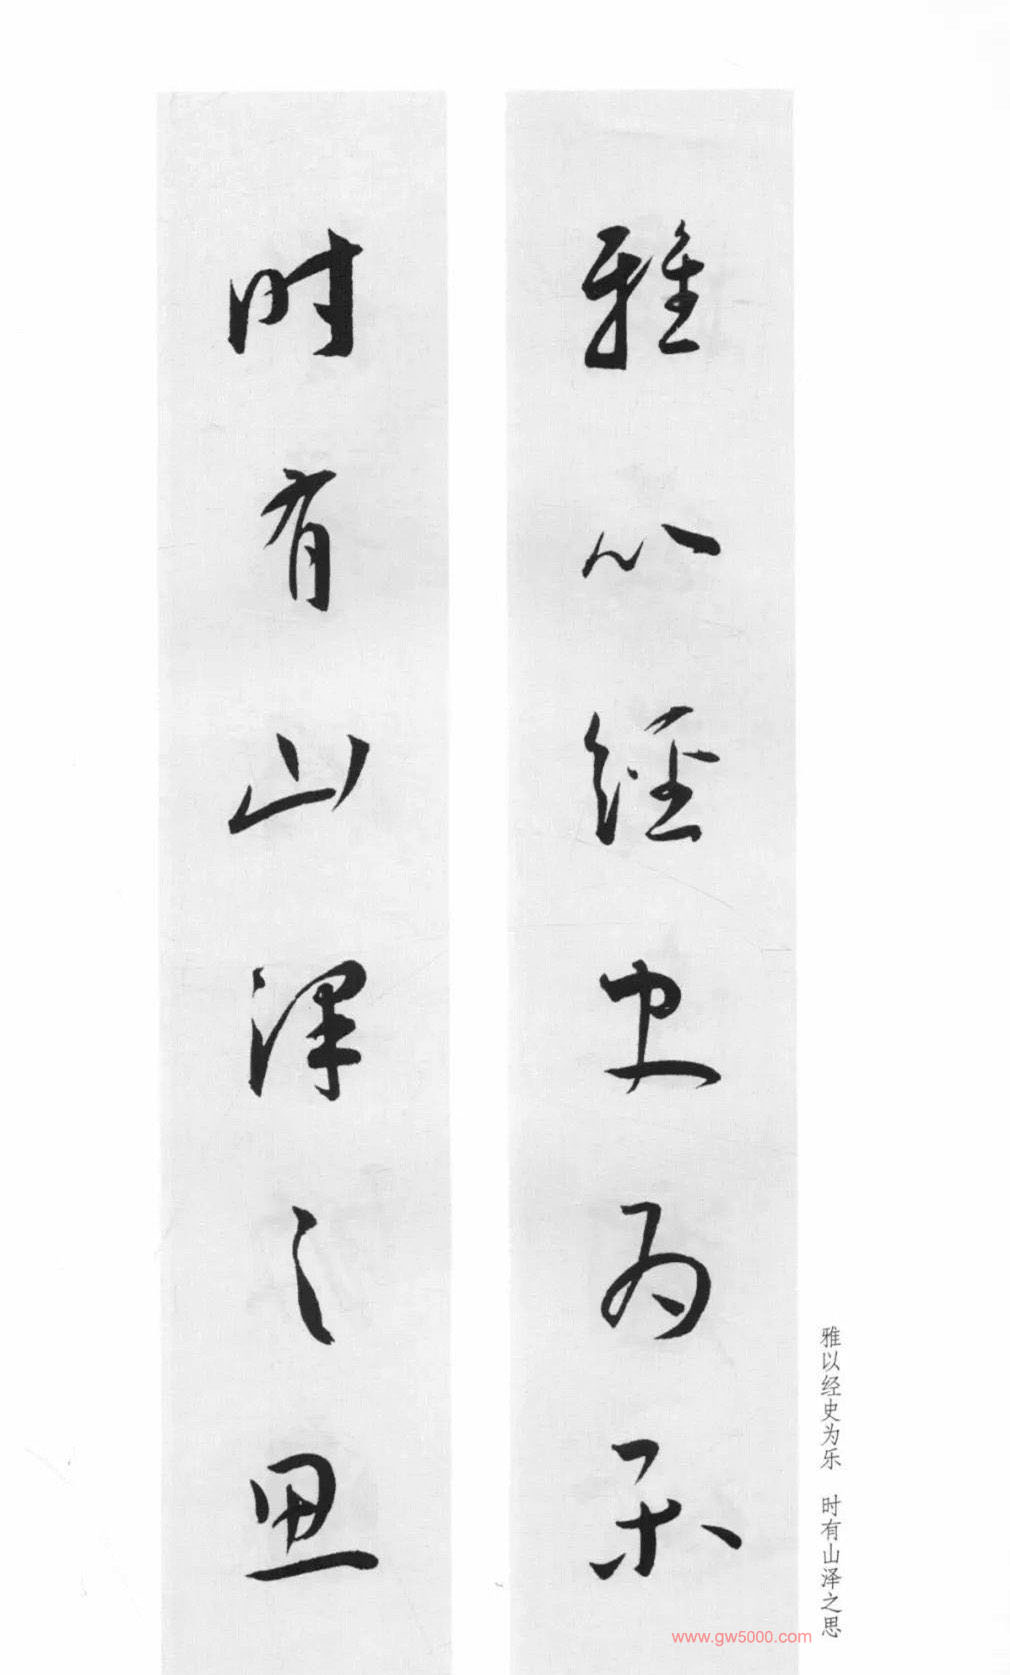 雅以經史为乐
时有山泽之思
雅以经史为乐 时有山泽之思
www.gw5000.com